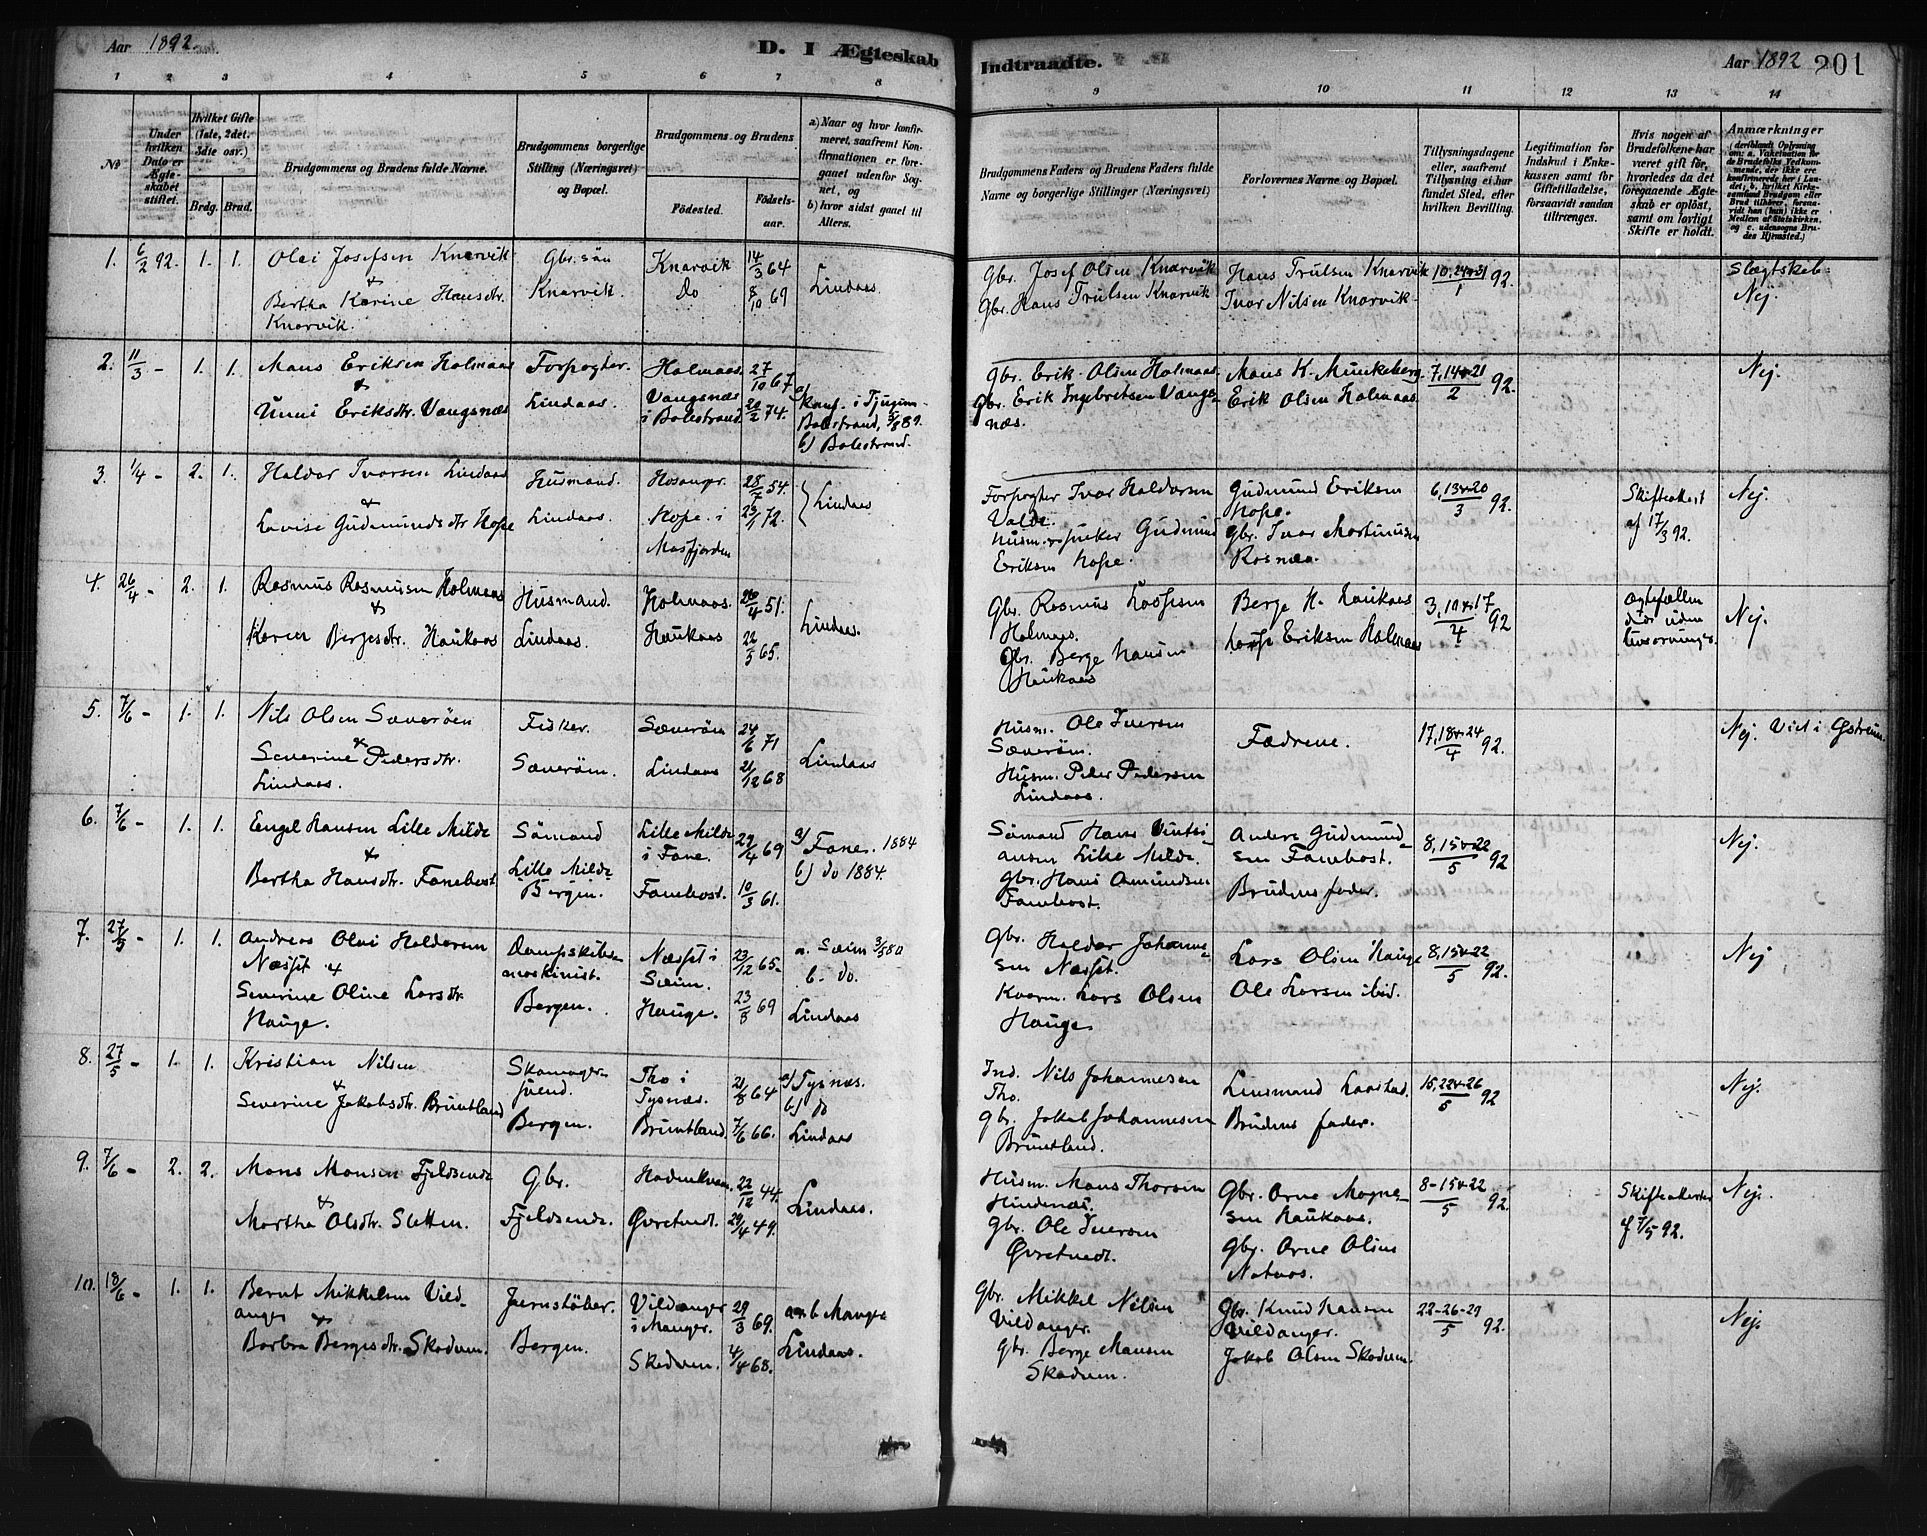 Aar 1892.
D. I Ægteskab
Indtraadte.
Aar 1892
201
1 2 3 4 5 6 7 8
9 10 11 12 13 14
No
Under hvilken Dato er Ægteskabet stiftet.
Hvilket Gifte (1ste, 2det. 3die osv.)
Brdg. Brud.
Brudgommens og Brudens fulde Navne.
Brudgommens borgerlige Stilling (Næringsvei) og Bopæl.
Brudgommens og Brudens
Fødested.
Fødselsaar.
a) Naar og hvor konfirmeret, saafremt Konfirmationen er foregaaet udenfor Sognet, og
b) hvor sidst gaaet til Alters.
Brudgommens Faders og Brudens Faders fulde Navne og borgerlige Stillinger (Næringsvei)
Forlovernes Navne og Bopæl.
Tillysningsdagene eller, saafremt Tillysning ei har fundet Sted, efter hvilken Bevilling.
Legitimation for Indskud i Enkekassen samt for Giftetilladelse, forsaavidt saadan tiltrænges.
Hvis nogen af Brudefolkene har været gift før, hvorledes da det foregaaende Ægteskab er opløst, samt om lovligt Skifte er holdt.
Anmærkninger
1. 6/2 92. 1. 1.
Olai Josefsen Knarvik
&
Bertha Karine Hansdtr.
Knarvik.
Gbr. søn
Knarvik.
Knarvik 14/3 64
Do 8/10 69
Lindaas.
Gbr. Josef Olsen Knarvik
Gbr. Hans Trulsen Knarvik
Hans Trulsen Knarvik
Ivar Nilsen Knarvik
10, 24 & 31/1 92.
Slægtskab:
Nej.
2. 11/3 - 1. 1.
Mons Eriksen Holmaas
&
Unni Eriksdtr. Vangsnæs
Forpagter.
Lindaas.
Holmaas. 27/10 67
Vangsnæs
i Balestrand 20/2 74.
a)
Konf. i Tjugum
Balestrand,
b) Balestrand.
Gbr. Erik Olsen Holmaas
Gbr. Erik Ingebretsen Vangs-
næs.
Mons H. Munkeberg
Erik Olsen Holmaas
7, 14 & 21/2 92.
Nej.
3. 1/4 - 2. 1.
Haldor Ivarsen Lindaas
&
Lovise Gudmundsdtr Hope
Husmand.
Lindaas.
Hosanger. 28/7 54.
Hope i 23/1 72.
Masfjorden
Lindaas
Forpagter Ivar Haldorsen
Valde.
Husm. & fisker Gudmund
Eriksen Hope.
Gudmund Eriksen
Hope.
Gbr. Ivar Martinussen
Rosnæs.
6, 13 & 20/3 92.
Skifteattest
af 17/3 92.
Nej.
4. 26/4 - 2. 1.
Rasmus Rasmusen Holmaas
&
Karen Bergesdtr. Haukaas
Husmand.
Lindaas.
Holmaas. 26/4 51.
Haukaas 22/3 65.
Lindaas.
Gbr. Rasmus
Holmaas.
Gbr. Berge Hansen
Haukaas
Berge H. Haukaas
Eriksen Holmaas
3, 10 & 17/4 92
Ægtefællen
død uden
Nej.
5. 7/6 - 1. 1.
Nils Olsen Sæverøen
&
Severine Pedersdtr.
Lindaas.
Fisker.
Sæverøen.
Sæverøen 24/6 71
Lindaas 21/12 68
Lindaas
Husm. Ole Iversen
Sæverøen.
Husm. Peder Pedersen
Lindaas.
Fædrene.
17, 18 & 24/4 92.
Nej. Viet i
6. 7/6 - 1. 1.
Engel Hansen Lille Milde
&
Bertha Hansdtr. Fanebost
Sømand
Lille Milde
Bergen.
Lille Milde
i Fane. 29/4 69
Fanebost. 10/3 61.
a) Fane. 1884
b) do 1884.
Sømand Hans
ansen Lille Milde.
Gbr. Hans Amundsen
Fanebost.
Anders Gudmund-
sen Fanebost.
Brudens fader.
8, 15 & 22/5 92
Nej.
7. 27/5 - 1. 1.
Andreas Olai Haldorsen
Næsset &
Severine Oline Larsdtr.
Hauge.
Dampskibs-
maskinist.
Bergen.
Næsset i
Sæim. 23/12 65.
Hauge. 23/8 69
a. Sæim 3/5 80
b. do.
Lindaas
Gbr. Haldor Johanne-
sen Næsset.
Kaarm. Lars Olsen
Hauge.
Lars Olsen Hauge
Ole Larsen ibid.
8, 15 & 22/5 92.
Nej
8. 27/5 - 1. 1.
Kristian Nilsen
&
Severine Jakobsdtr. Bruntland
Skomager-
svend.
Bergen.
Tho i
Tysnæs. 21/8 64
Bruntland. 7/6 66.
a) Tysnæs.
b) do
Lindaas
Ind. Nils Johannesen
Tho.
Gbr. Jakob Johannesen
Bruntland.
Lensmand Laastad.
Brudens fader.
15, 22 & 26/5 92
Nej.
9. 7/6 - 2. 2.
Mons Monsen Fjeldsende
&
Martha Olsdtr. Sletten.
Gbr.
Fjeldsende.
22/12 44.
Øvretvedt. 29/4 49.
Lindaas.
Husm. Mons Thorsen
Hindenæs.
Gbr. Ole Iversen
Øvretvedt.
Gbr. Arne Magne-
sen Haukaas.
Gbr. Arne Olsen
Nataas.
8-15 & 22/5 92.
Skifteattest
af 7/5 92.
Nej.
10. 18/6 - 1. 1.
Bernt Mikkelsen Vild-
anger
&
Barbra Bergesdtr. Skodven.
Jernstøber.
Bergen.
Vildanger
i Manger. 29/3 69.
Skodven. 4/4 68.
a & b Manger
Lindaas.
Gbr. Mikkel Nilsen
Vildanger.
Gbr. Berge Monsen
Skodven.
Gbr. Knud Hansen
Vildanger.
Jakob Olsen Skodven.
22-26-29/5 92.
Nej.